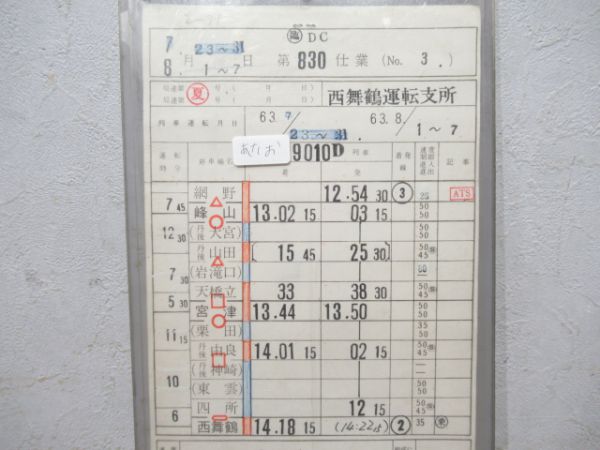 臨 DC
7. 23～31
月 日 第 830 仕業 (No. 3.)
8. 1～7
夏 号 ( 月 日) 号 ( 月 日) 西舞鶴運転支所
列車運転月日 63. 7/23～31 63. 8/1～7
あたしお 9010D 列車
運転時分 停車場名 着 発 着発線 記事
網野 12.54 30 ③ 25 ATS
7 45
峰山 13.02 15 03 15 50 50
12 30 (丹後大宮) 50 50
丹後山田 [15 45 25 30] 50 45
7 30 (岩滝口) 60
天橋立 33 38 30 50 45
5 30
宮津 13.44 13.50 50 50
(栗田) 35 50
11 15
丹後由良 14.01 15 02 15 50 45
(丹後神崎)
10
(東雲) 50 50
四所 12 15 50 45
6
西舞鶴 14.18 15 (14:22 15) ② 35